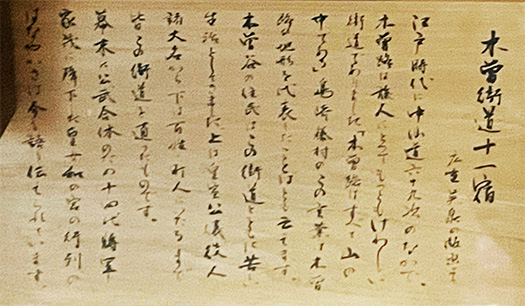 木曽街道十一宿
広重英泉の版画
江戸時代に中仙道六十九次のなかで、
木曽路は旅人にとってもっともけわしい
街道でありました「木曽路はすべて山の
中である」島崎藤村のこの言葉は木曽
路の地形を代表したことばと云えます。
木曽谷の住民はこの街道とともに苦しい
生活をしてきました上は皇室公儀役人
諸大名から下は百姓町人にいたるまで
皆この街道を通ったものです。
幕末に公武合体のため十四代将軍
家茂に降下した皇女和の宮の行列の
はなやかさは今も語り伝えられています。